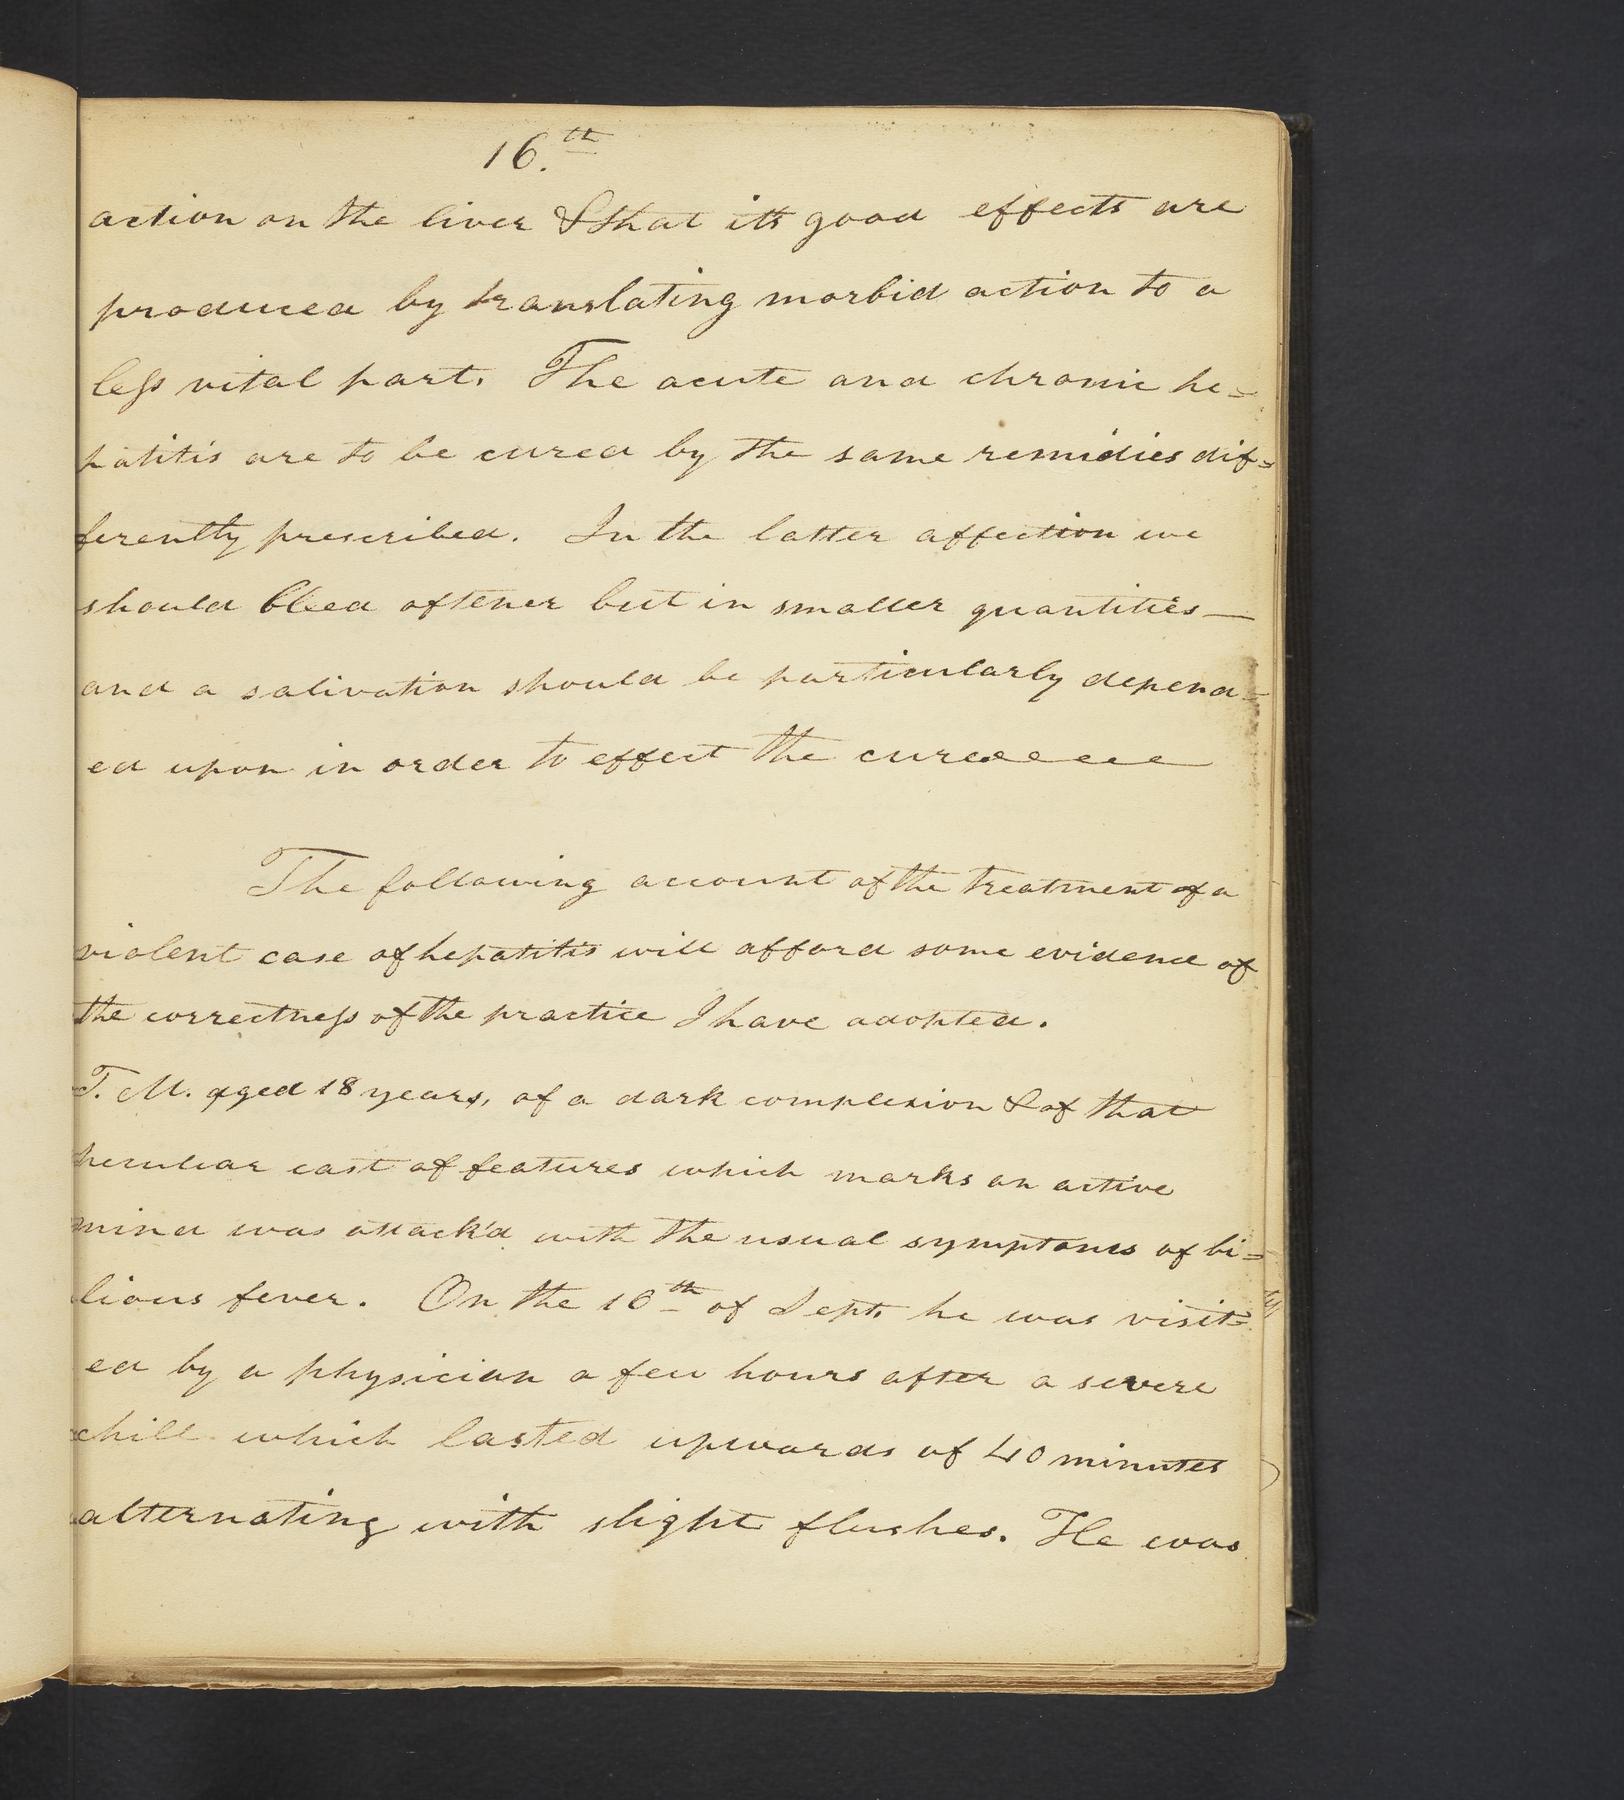 16.th
action on the liver & that it's good effects are
produced by translating morbid action to a
less vital part. The acute and chronic he=
patitis are to be cured by the same remidies dif=
ferently prescribed. In the latter affection we
should bleed oftener but in smaller quantities—
and a salivation should be particularly depend=
ed upon in order to effect the cure
The following account of the treatment of a
violent case of hepatitis will afford some evidence of
the correctness of the practice I have adopted.
T. M. aged 18 years, of a dark complexion & of that
peculiar cast of features which marks an active
mind was attack'd with the usual symptoms of bi=
lious fever. On the 10th of Sept. he was visit=
ed by a physician a few hours after a severe
chill which lasted upwards of 40 minutes
alternating with slight flushes. He was